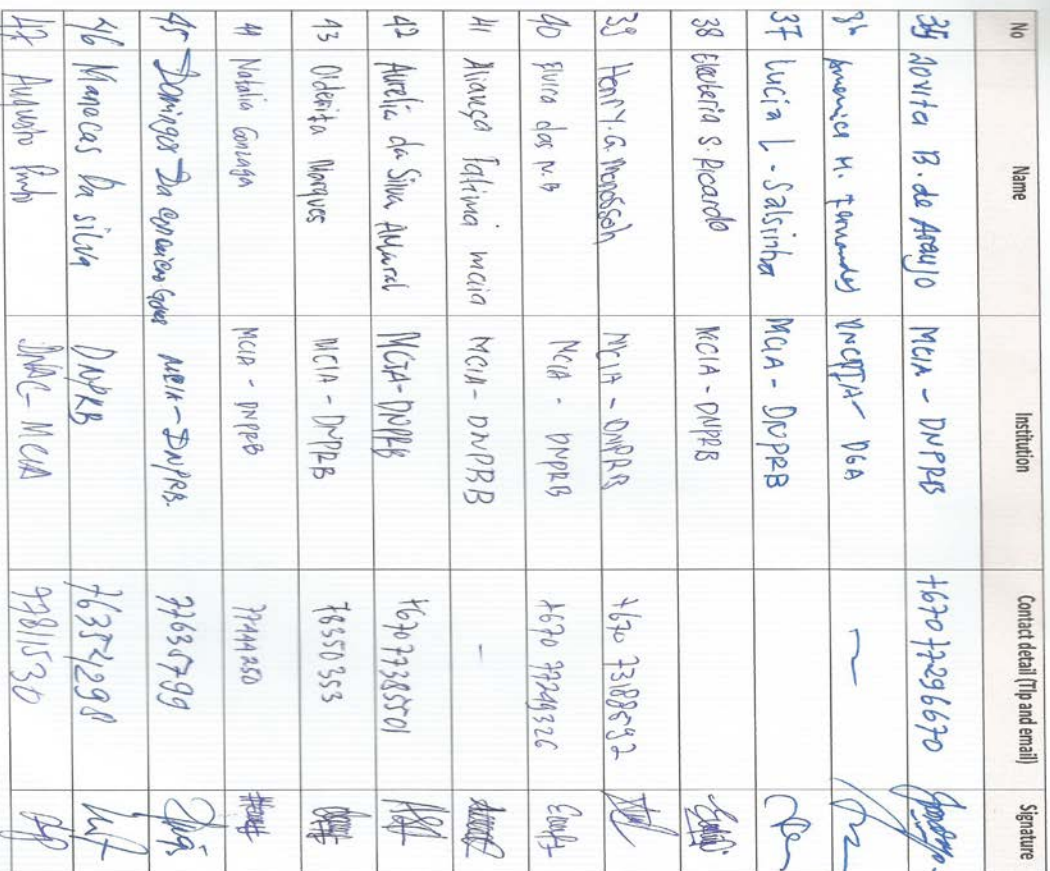 No Name Institution Contact detail (Tlp and email) Signature
35 Jovita B. de Araujo MCIA - DNPRB +670 77296670
36 H. Fernandes DGA
37 Lucia L. Salsinha MCIA - DNPRB
38 Eleuteria S. Ricardo MCIA - DNPRB
39 Henry. G. MCIA - DNPRB +670 73188592
40 Elvira das N. B MCIA - DNPRB +670 77249326
41 Aliança Fatima maia MCIA - DNPRB -
42 Aurelia da Silva Amaral MCIA - DNPRB +670 77385501
43 Oldenita Marques MCIA - DNPRB 78350353
44 Natalia Gonzaga MCIA - DNPRB 77444250
45 Domingos Da MCIA - DNPRB. 77635799
46 Manecas Da silva DNPRB 76354298
47 Augusto DNAC - MCIA 77811530